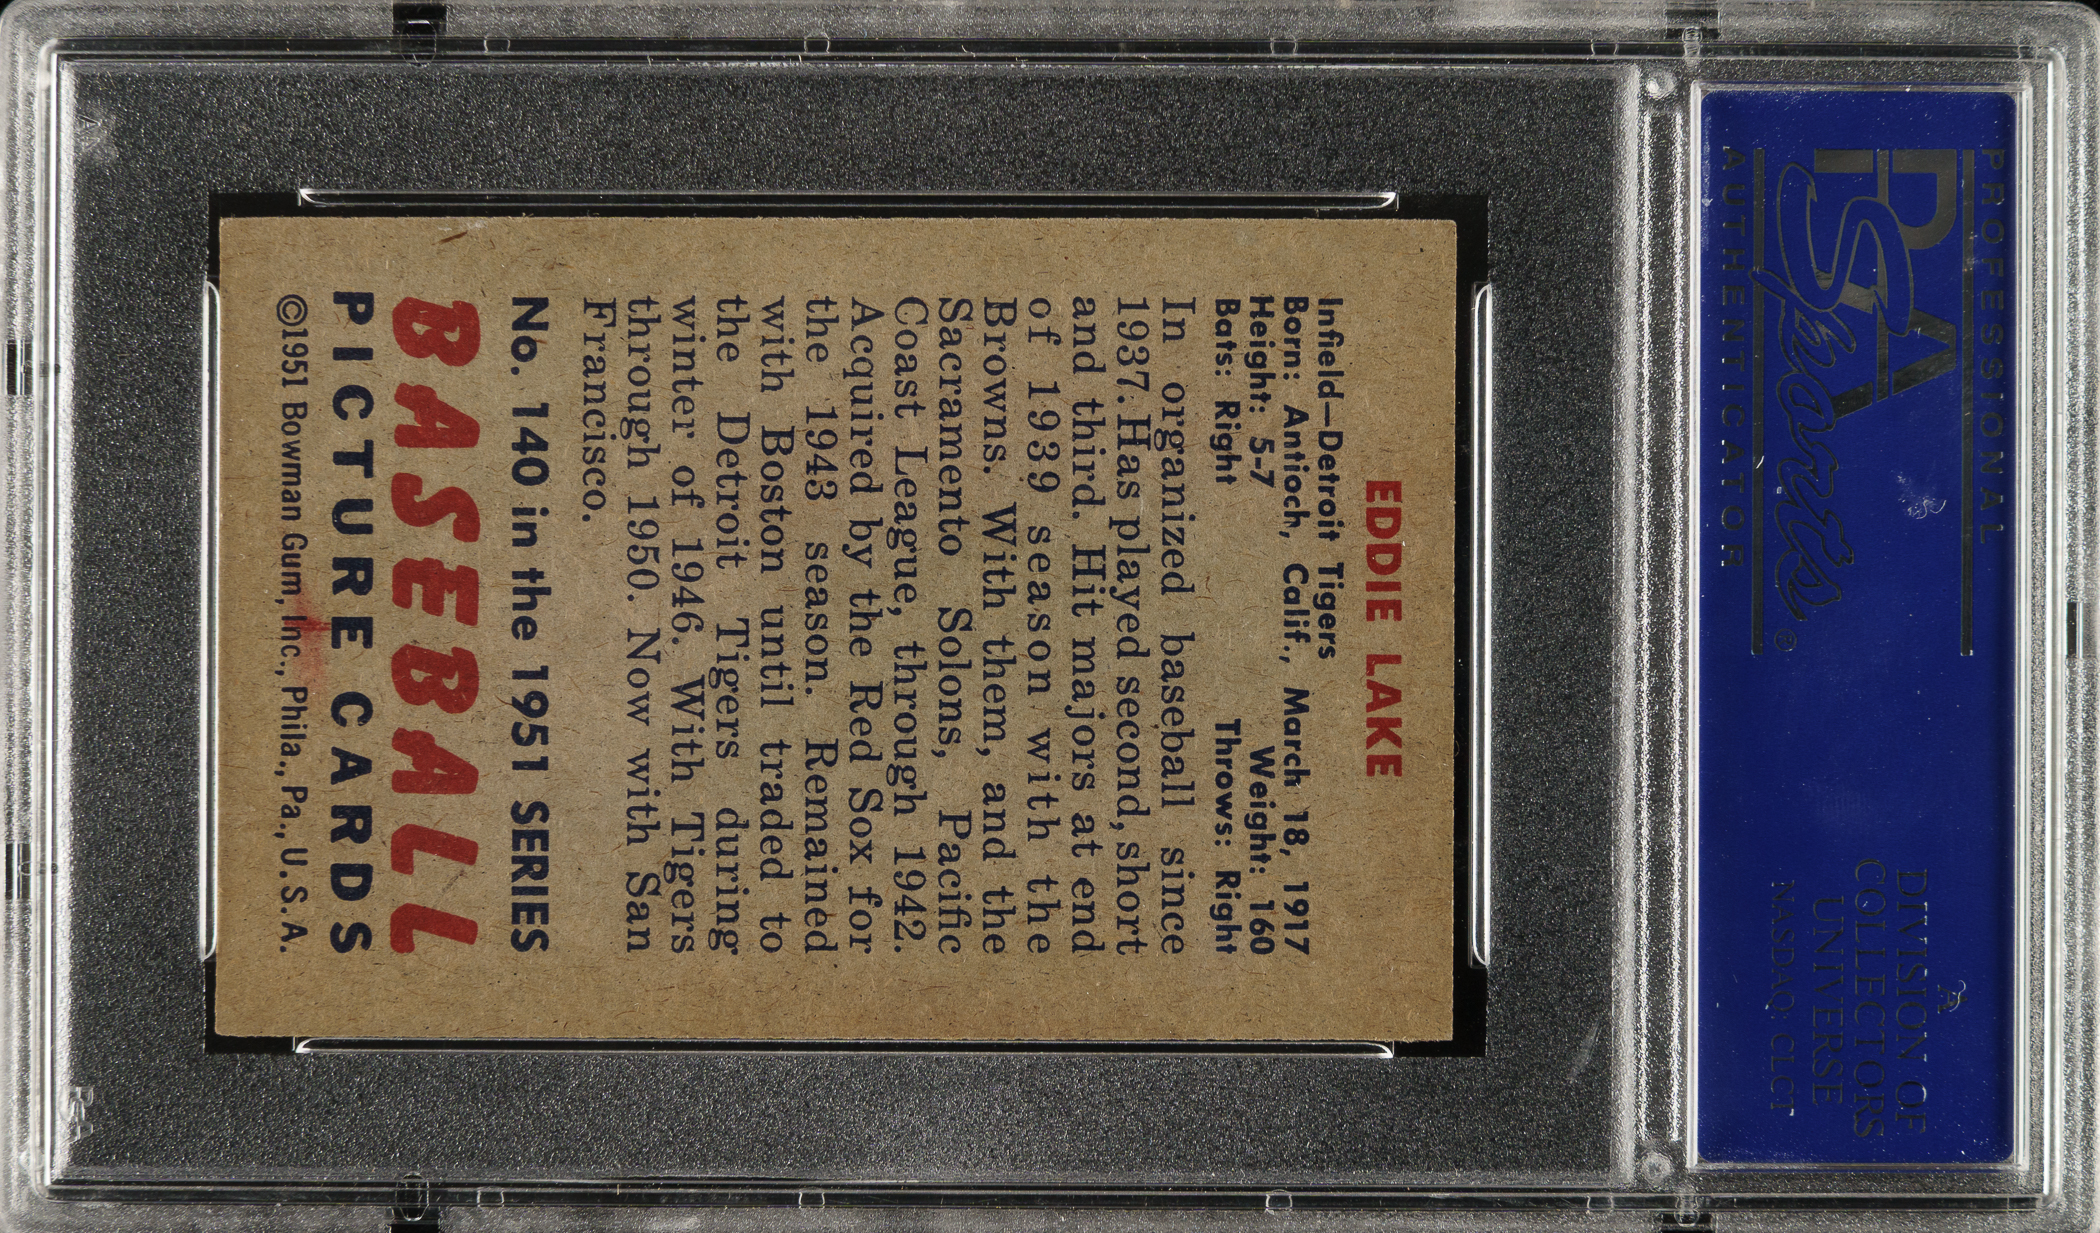 PROFESSIONAL
PSA
Sports®
AUTHENTICATOR
DIVISION OF
COLLECTORS
UNIVERSE
NASDAQ: CLCT
EDDIE LAKE
Infield—Detroit Tigers
Born: Antioch, Calif., March 18, 1917
Height: 5-7 Weight: 160
Bats: Right Throws: Right
In organized baseball since
1937. Has played second, short
and third. Hit majors at end
of 1939 season with the
Browns. With them, and the
Sacramento Solons, Pacific
Coast League, through 1942.
Acquired by the Red Sox for
the 1943 season. Remained
with Boston until traded to
the Detroit Tigers during
winter of 1946. With Tigers
through 1950. Now with San
Francisco.
No. 140 in the 1951 SERIES
BASEBALL
PICTURE CARDS
©1951 Bowman Gum, Inc., Phila., Pa., U.S.A.
PSA